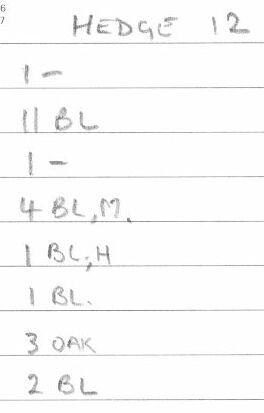 6
7
HEDGE 12
1 -
11 BL
1 -
4 BL, M.
1 BL, H
1 BL.
3 OAK
2 BL